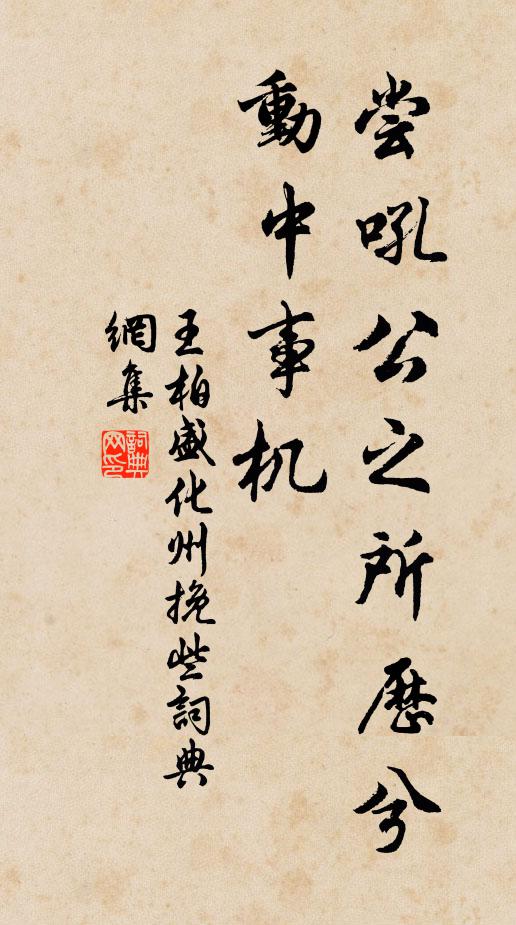 尝吼公之所歷兮
動中事机
王柏盛化州挽些詞典
網集
詞典网印